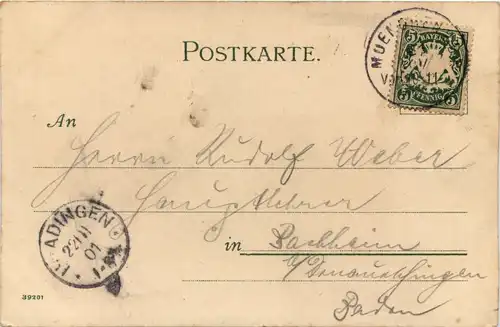 POSTKARTE.
MUENCHEN
V
BAYERN
5 5
PFENNIG
An
Herrn Rudolf Weber
Hauptlehrer
in Bachheim
b/Donaueschingen
Baden
ADINGEN
22 III
01
39201